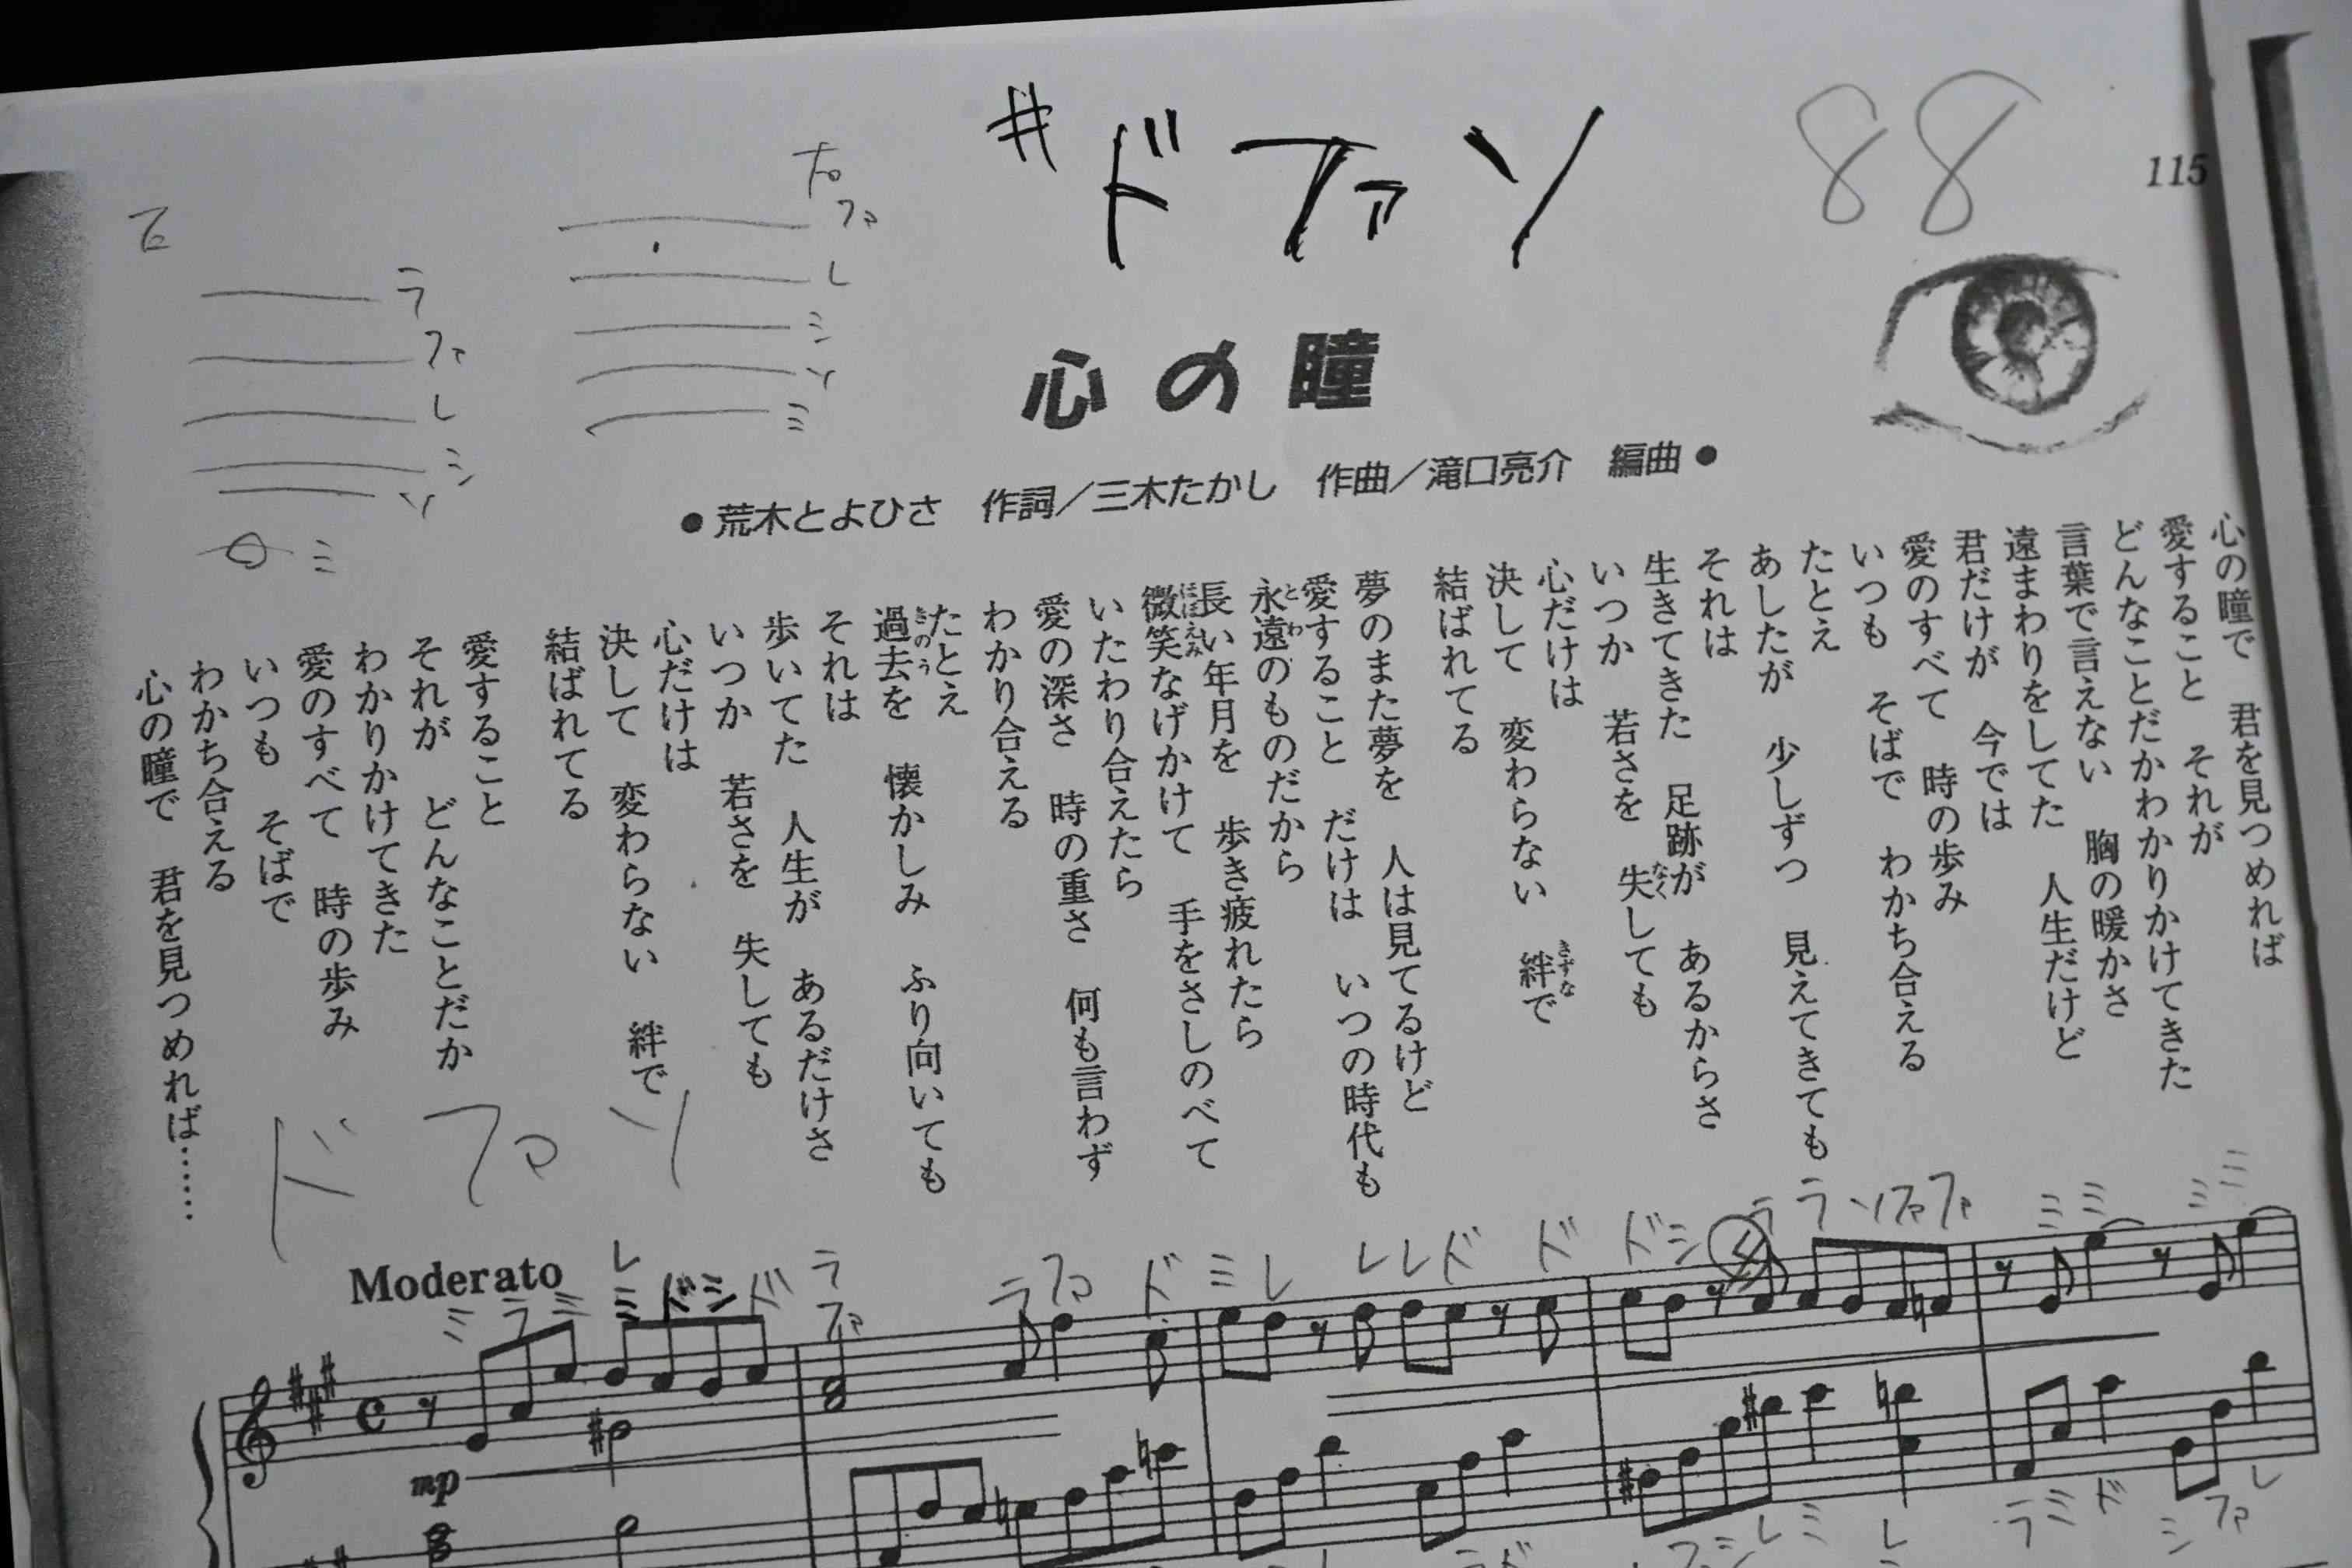 #ドファソ
88
115
右
ファ
レ
シ
ソ
ミ
ラ
ファ
レ
シ
ソ
ミ
心の瞳
●荒木とよひさ 作詞／三木たかし 作曲／滝口亮介 編曲●
心の瞳で 君を見つめれば
愛すること それが
どんなことだかわかりかけてきた
言葉で言えない 胸の暖かさ
遠まわりをしてた 人生だけど
君だけが 今では
愛のすべて 時の歩み
いつも そばで わかち合える
たとえ
あしたが 少しずつ 見えてきても
それは
生きてきた 足跡が あるからさ
いつか 若さを 失しても
なく
心だけは
決して 変わらない 絆で
きずな
結ばれてる
夢のまた夢を 人は見てるけど
愛すること だけは いつの時代も
永遠のものだから
とわ
長い年月を 歩き疲れたら
微笑なげかけて 手をさしのべて
ほほえみ
いたわり合えたら
愛の深さ 時の重さ 何も言わず
わかり合える
たとえ
過去を 懐かしみ ふり向いても
きのう
それは
歩いてた 人生が あるだけさ
いつか 若さを 失しても
心だけは
決して 変わらない 絆で
結ばれてる
愛すること
それが どんなことだか
わかりかけてきた
愛のすべて 時の歩み
いつも そばで
わかち合える
心の瞳で 君を見つめれば……
ドファソ
Moderato
レ
ミ ラ ミ ミ ド シ ド
ラ
ファ
ラ ファ ド ミ レ レ レ ド ド ド シ ラ ラ ソ ファ ファ ミ ミ ミ ミ
mp
レ ミ レ ラ ミ ド シ ファ レ